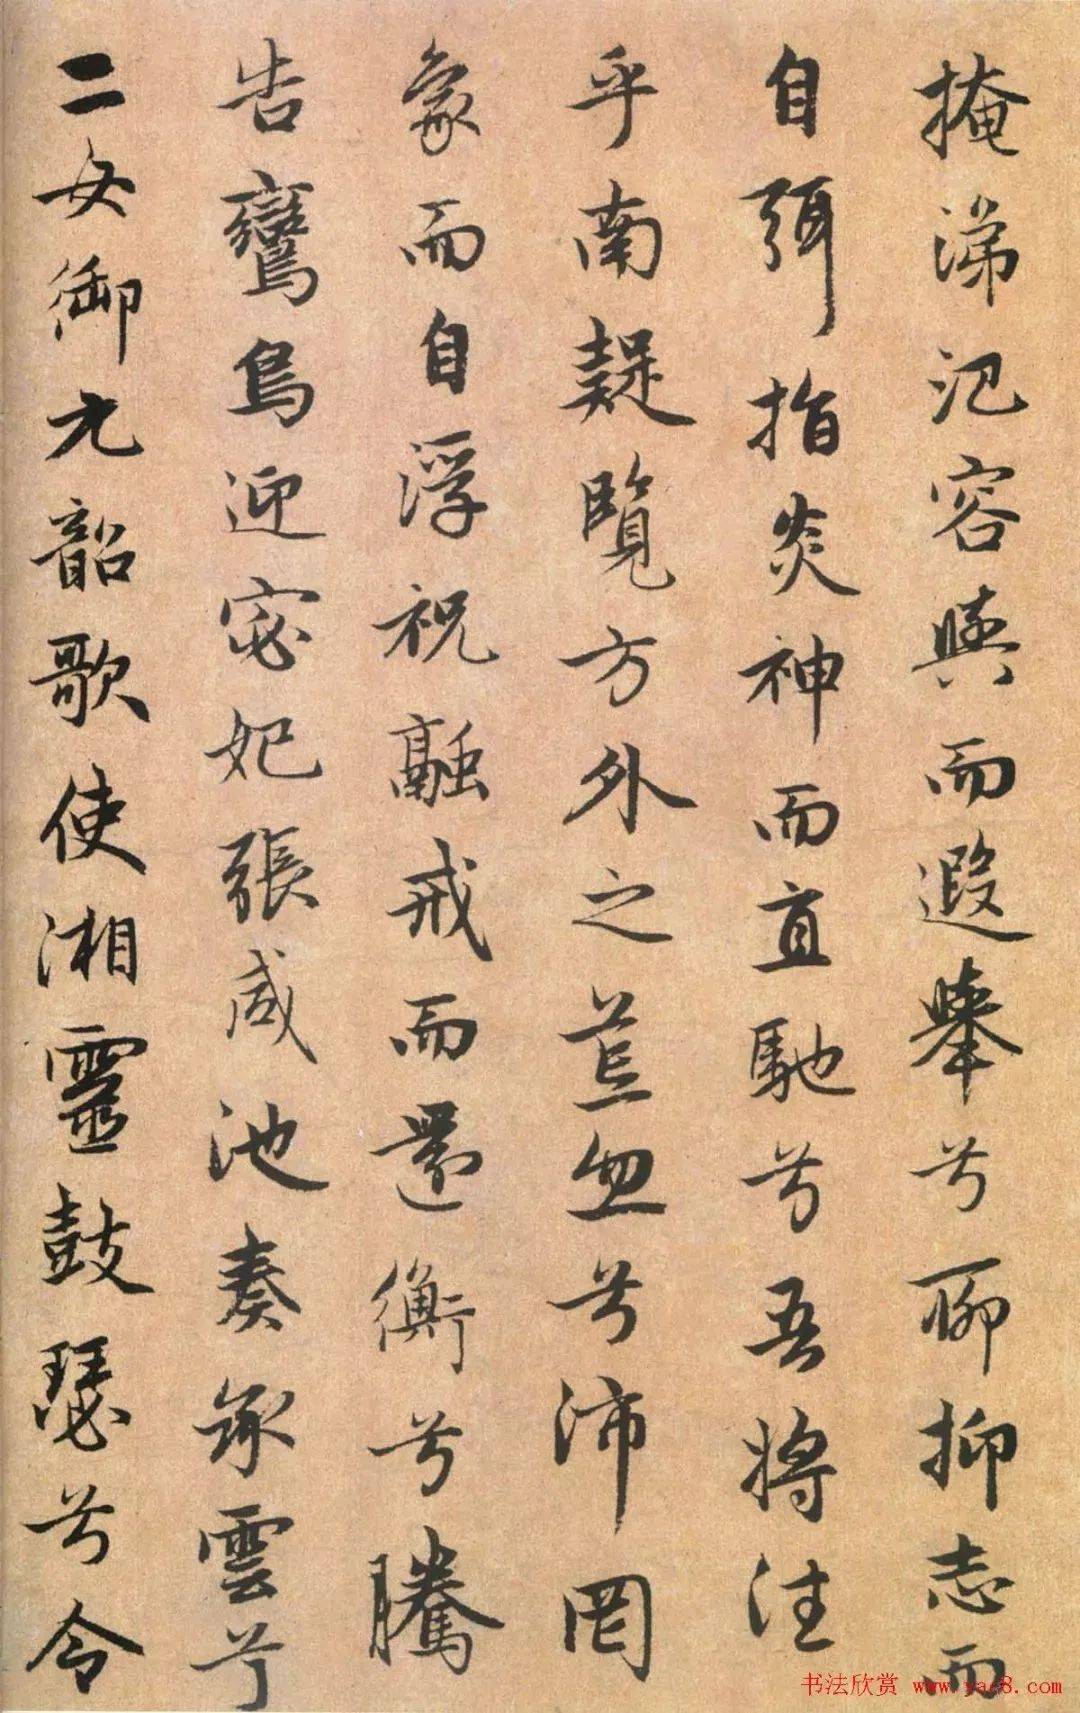 掩涕氾容與而遐舉兮聊抑志而
自弭指炎神而直馳兮吾將往
乎南疑覽方外之荒忽兮沛罔
象而自浮祝融戒而還衡兮騰
告鸞鳥迎宓妃張咸池奏承雲兮
二女御九韶歌使湘靈鼓瑟兮令
书法欣赏 www.yac8.com